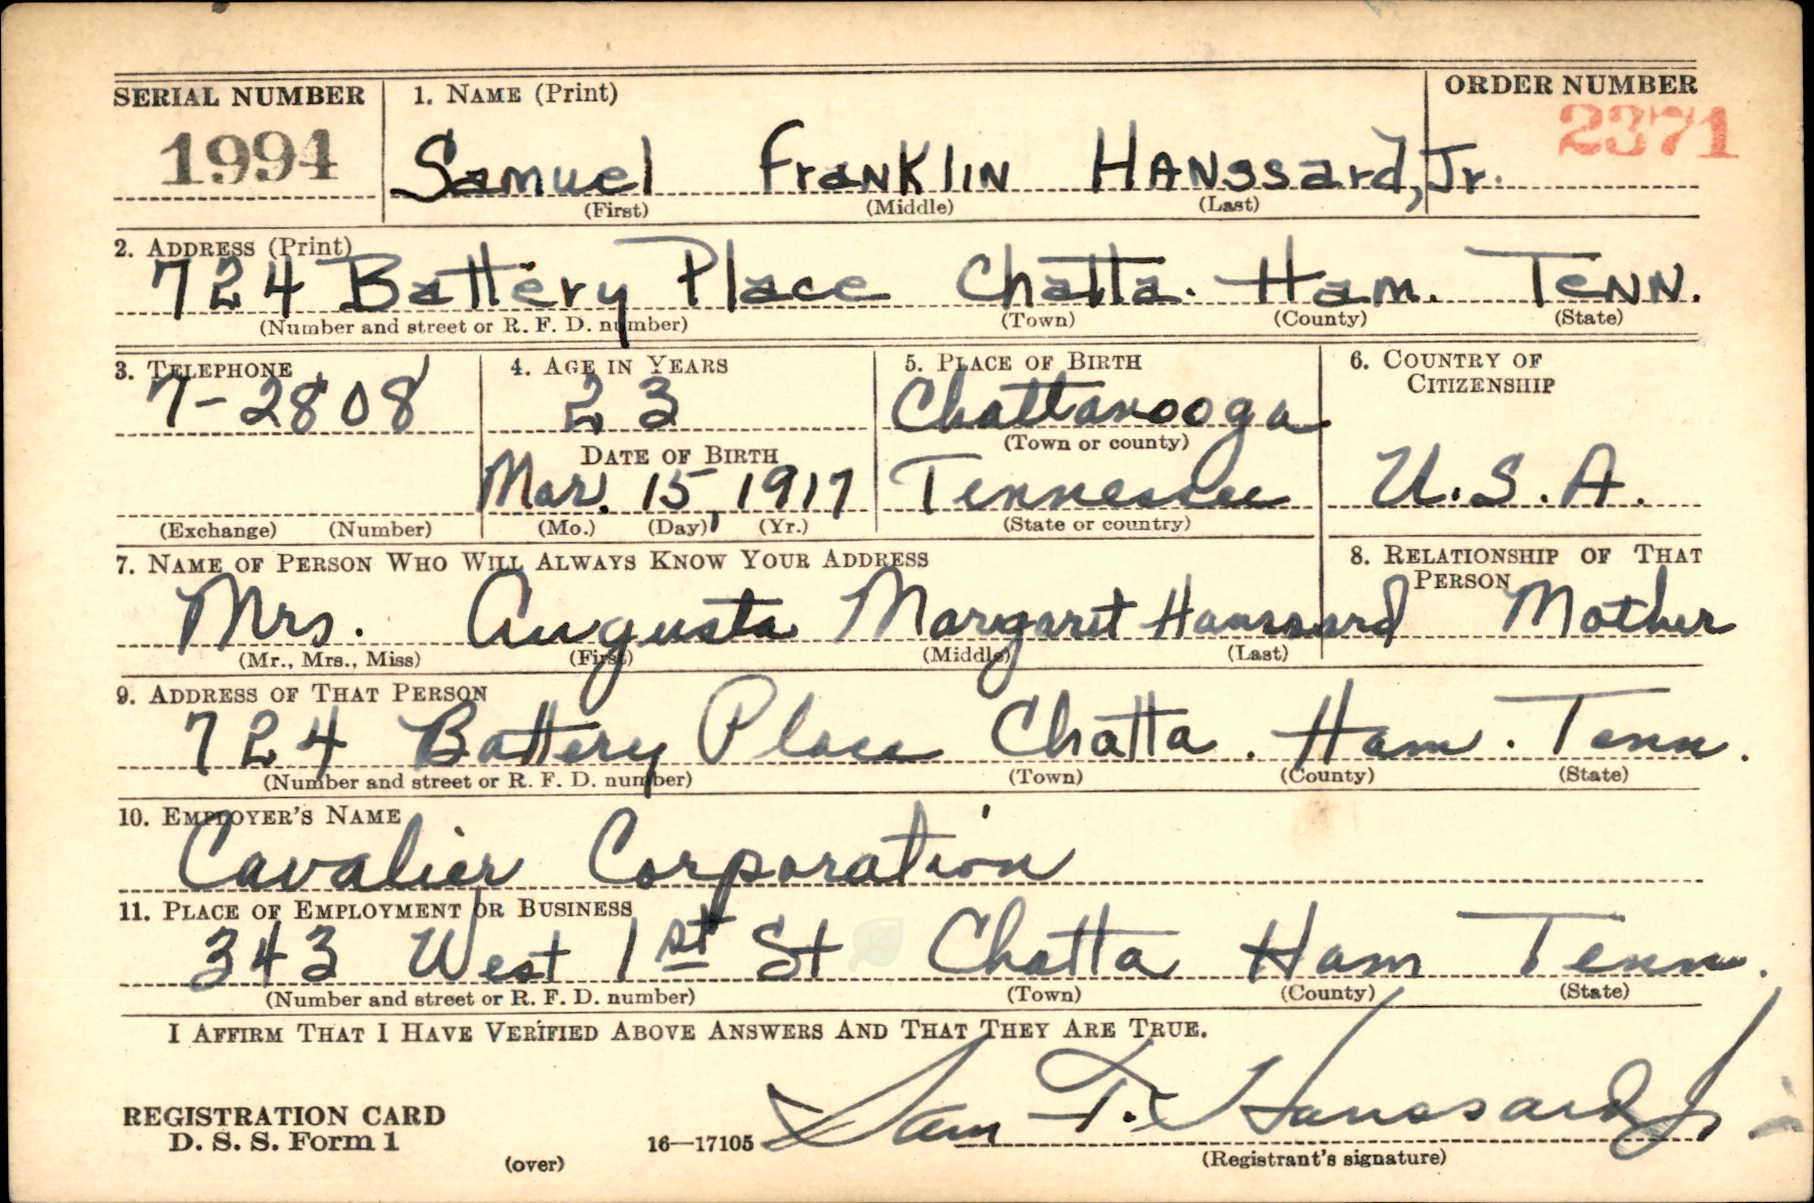 SERIAL NUMBER 1. NAME (Print) ORDER NUMBER
1994 Samuel Franklin Hanssard, Jr. 2371
(First) (Middle) (Last)
2. ADDRESS (Print)
724 Battery Place Chatta. Ham. Tenn.
(Number and street or R. F. D. number) (Town) (County) (State)
3. TELEPHONE 4. AGE IN YEARS 5. PLACE OF BIRTH 6. COUNTRY OF CITIZENSHIP
7-2808 23 Chattanooga
(Town or county)
DATE OF BIRTH
Mar. 15, 1917 Tennessee U.S.A.
(Exchange) (Number) (Mo.) (Day) (Yr.) (State or country)
7. NAME OF PERSON WHO WILL ALWAYS KNOW YOUR ADDRESS 8. RELATIONSHIP OF THAT PERSON
Mrs. Augusta Margaret Hanssard Mother
(Mr., Mrs., Miss) (First) (Middle) (Last)
9. ADDRESS OF THAT PERSON
724 Battery Place Chatta. Ham. Tenn.
(Number and street or R. F. D. number) (Town) (County) (State)
10. EMPLOYER'S NAME
Cavalier Corporation
11. PLACE OF EMPLOYMENT OR BUSINESS
343 West 1st St Chatta Ham Tenn.
(Number and street or R. F. D. number) (Town) (County) (State)
I AFFIRM THAT I HAVE VERIFIED ABOVE ANSWERS AND THAT THEY ARE TRUE.
Sam F. Hanssard Jr
REGISTRATION CARD
D. S. S. Form 1 16—17105
(over) (Registrant's signature)